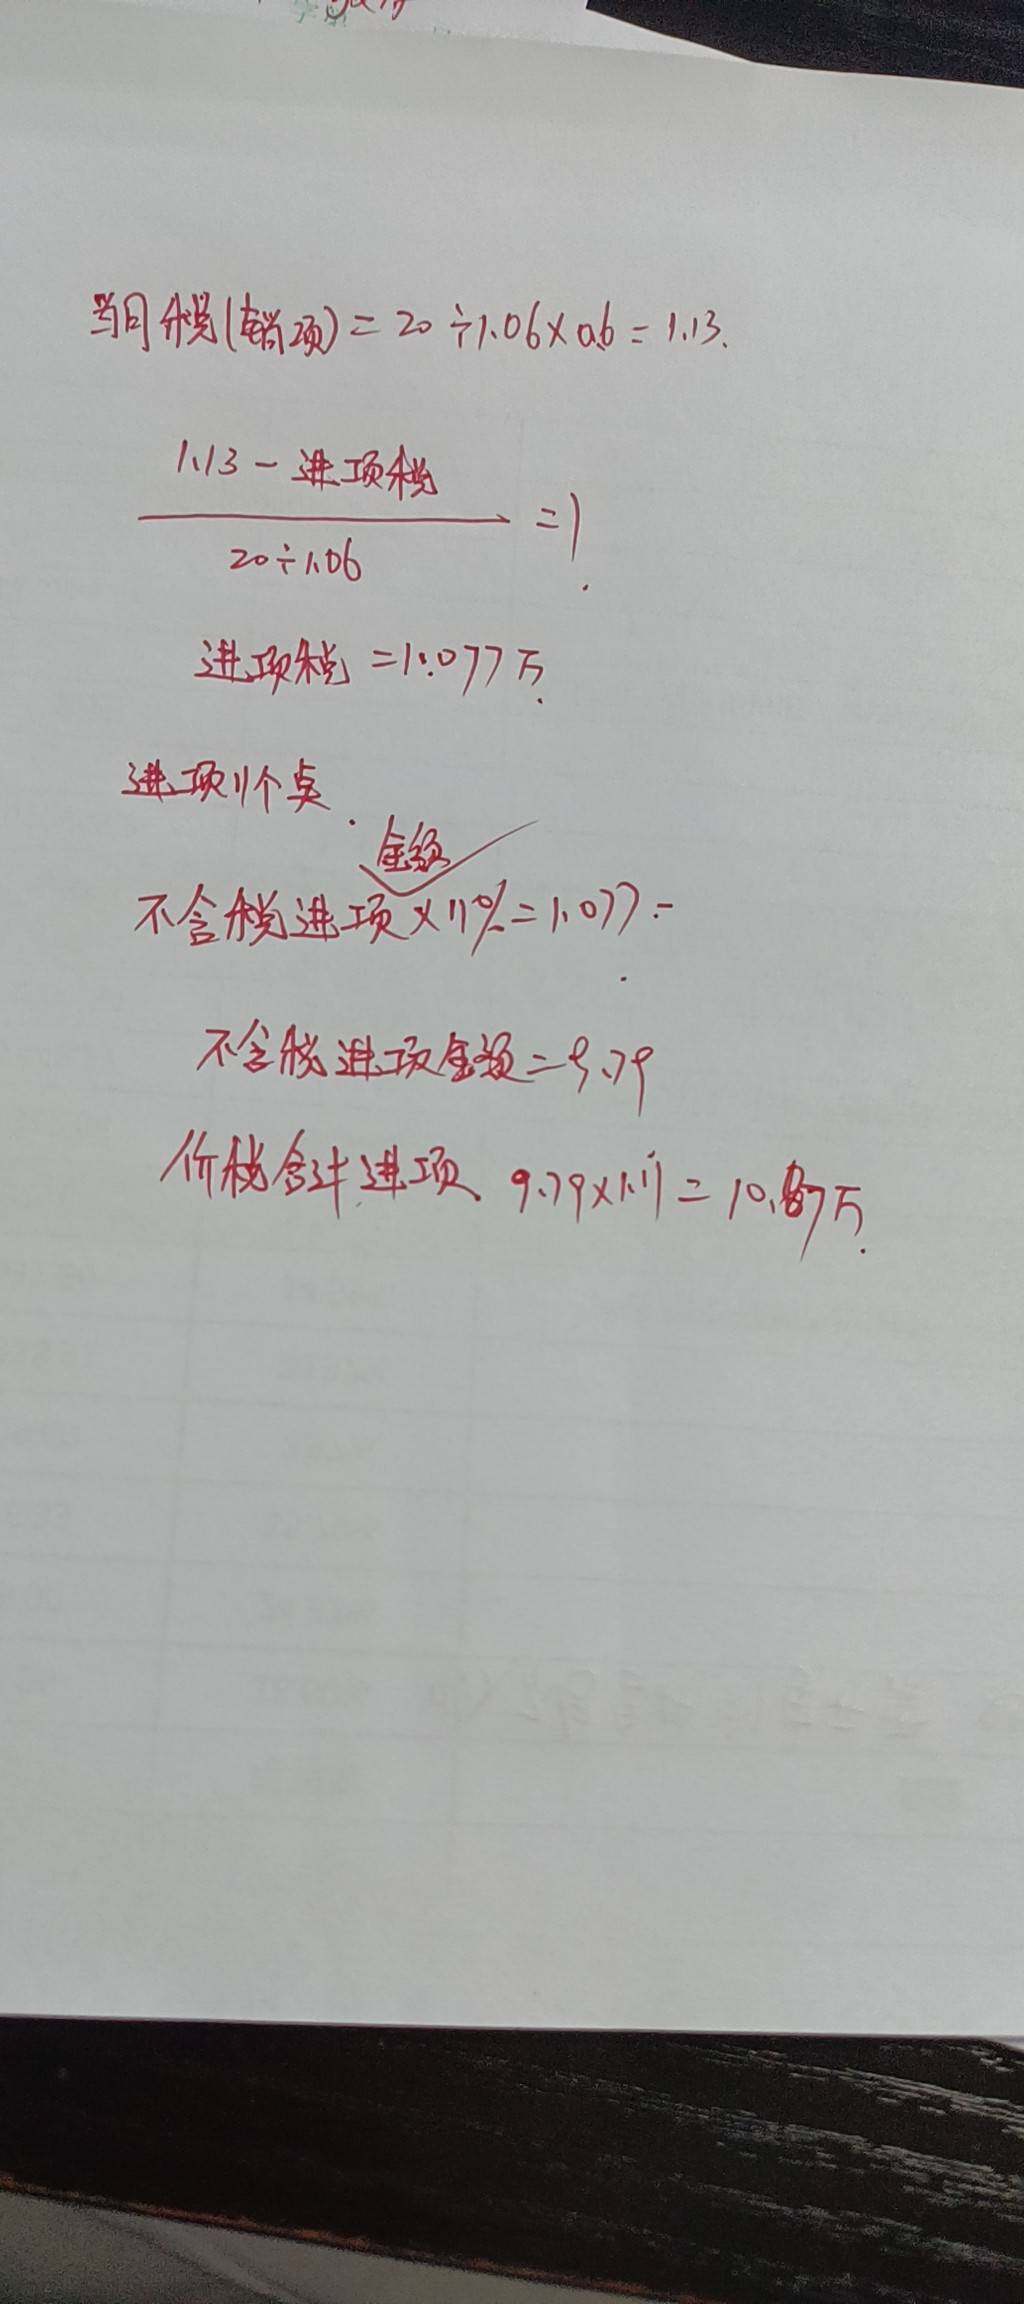 当月税(销项)=20÷1.06×0.6=1.13.
1.13-进项税
20÷1.06
=1.
进项税=1.077万.
进项11个点.
金额
不含税进项×11%=1.077.-
不含税进项金额=9.79
价税合计进项 9.79×1.11=10.87万.